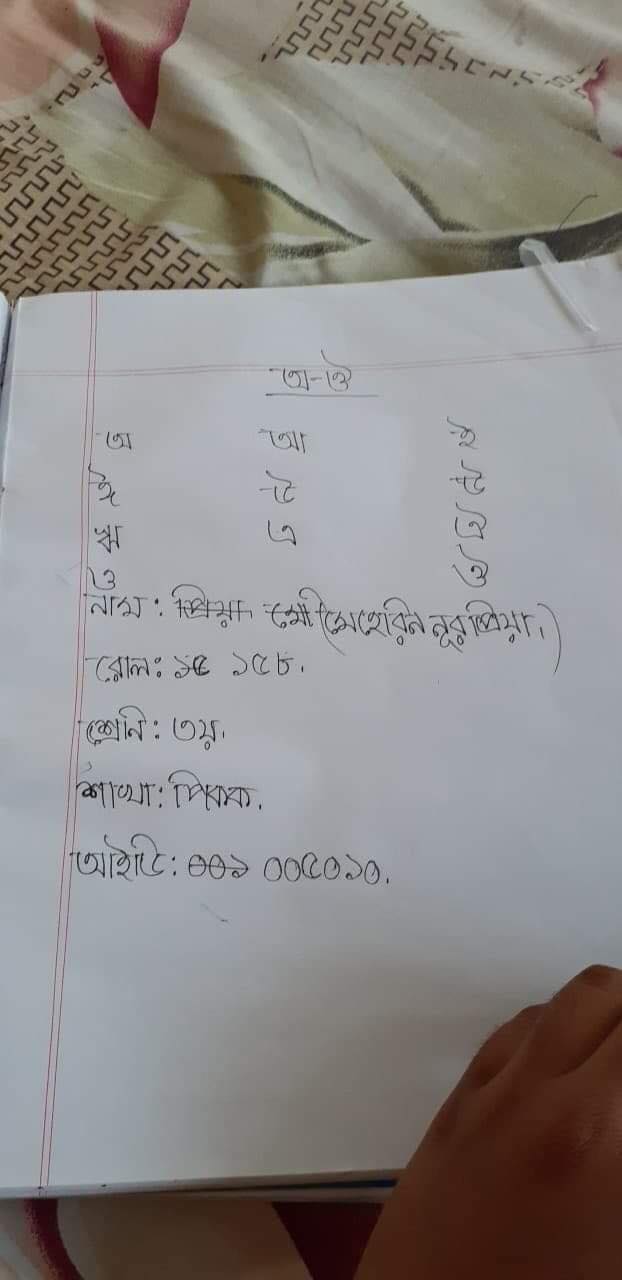 অ-ঔ
অ আ ই
ঈ উ ঊ
ঋ এ ঐ
ও ঔ
নাম: প্রিয়া মৌ (মেহেরিন নূর প্রিয়া।)
রোল: ১৫ ১৫৮.
শ্রেনি: ৩য়.
শাখা: পিকক.
আইটি: ০০১ ০০৫০১০.